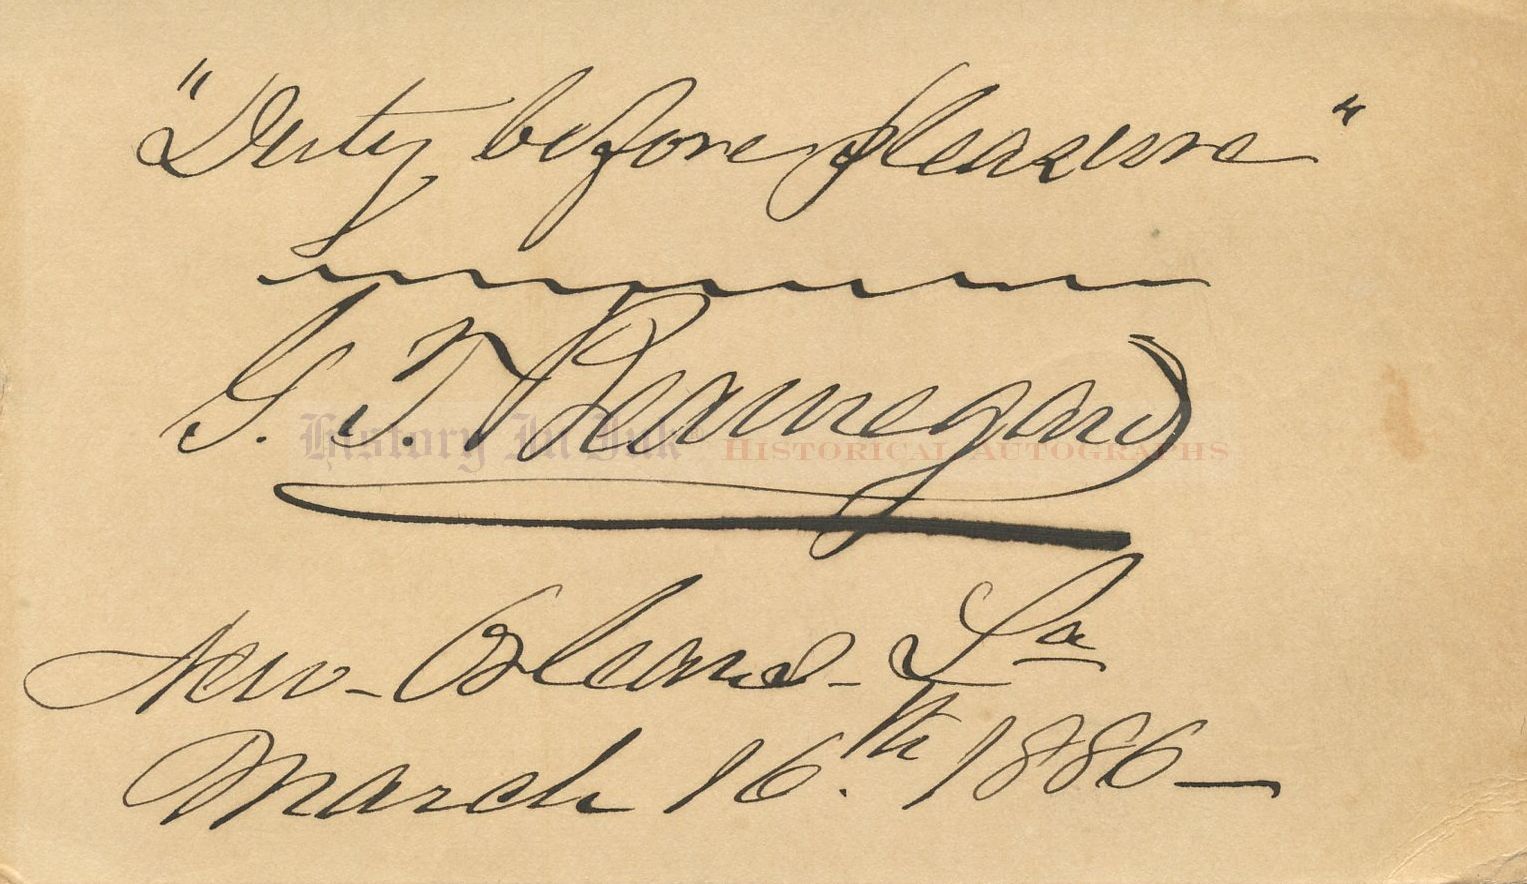 "Duty before pleasure"
G. T. Beauregard
History In Ink Historical Autographs
New-Orleans-La
March 16.th 1886-